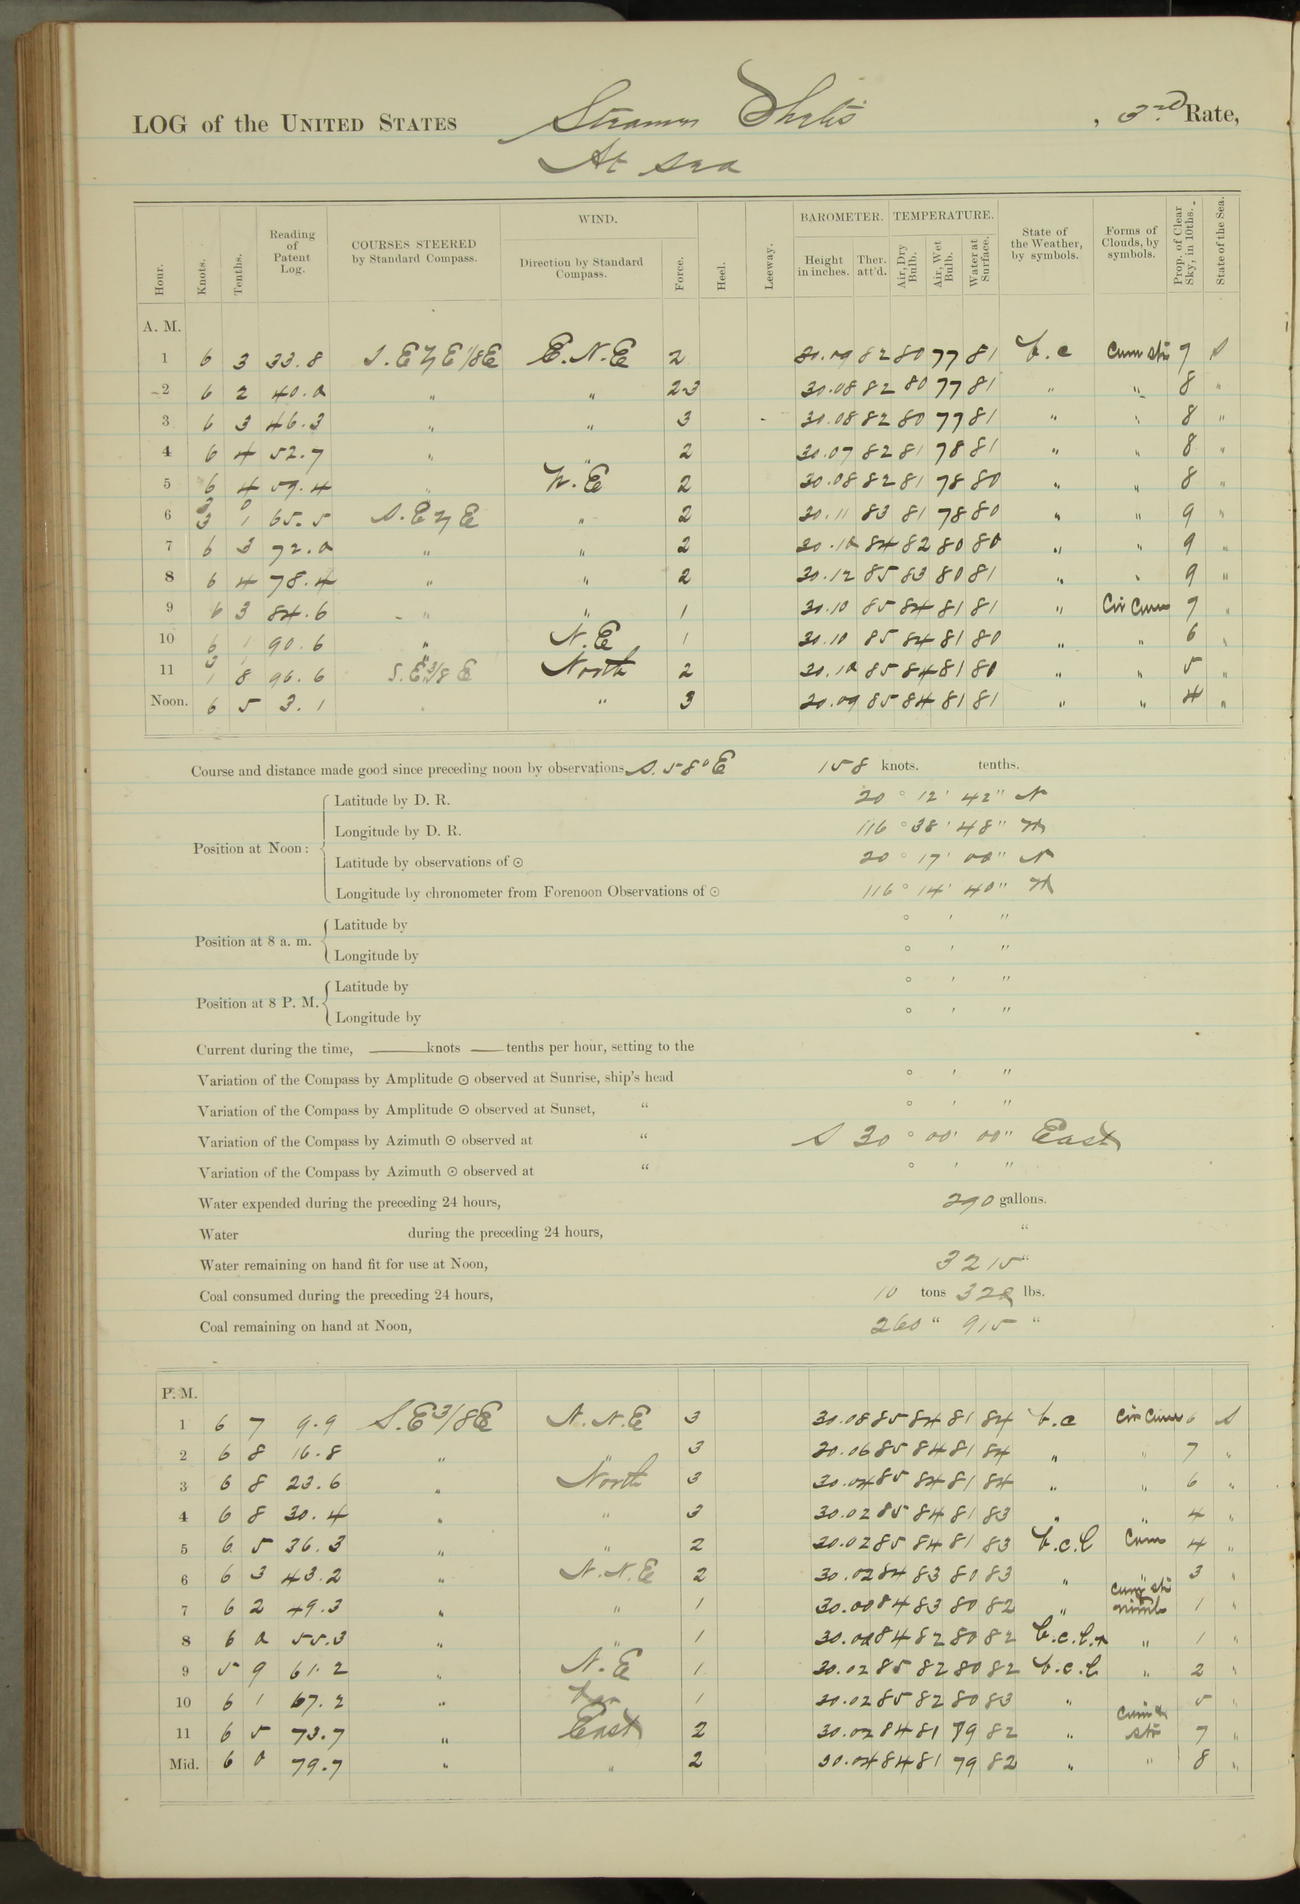 LOG of the UNITED STATES Steamer Thetis, 3rd Rate,
At sea
Hour. Knots. Tenths. Reading of Patent Log. COURSES STEERED by Standard Compass. WIND. Direction by Standard Compass. Force. Heel. Leeway. BAROMETER. Height in inches. Ther. att'd. TEMPERATURE. Air, Dry Bulb. Air, Wet Bulb. Water at Surface. State of the Weather, by symbols. Forms of Clouds, by symbols. Prop. of Clear Sky, in 10ths. State of the Sea.
A. M.
1 6 3 33.8 S.E by E 1/8 E E.N.E 2 30.09 82 80 77 81 b.c Cum Str 7 S
2 6 2 40.0 " " 2-3 30.08 82 80 77 81 " " 8 "
3 6 3 46.3 " " 3 30.08 82 80 77 81 " " 8 "
4 6 4 52.7 " " 2 30.07 82 81 78 81 " " 8 "
5 6 4 59.4 " N.E 2 30.08 82 81 78 80 " " 8 "
6 3 3 0 1 65.5 S.E by E " 2 30.11 83 81 78 80 " " 9 "
7 6 3 72.0 " " 2 30.10 84 82 80 80 " " 9 "
8 6 4 78.4 " " 2 30.12 85 83 80 81 " " 9 "
9 6 3 84.6 " " 1 30.10 85 84 81 81 " Cir Cum 7 "
10 6 1 90.6 " N.E 1 30.10 85 84 81 80 " " 6 "
11 8 96.6 " S.E 3/8 E North 2 30.10 85 84 81 80 " " 5 "
Noon. 6 5 3.1 " 3 30.09 85 84 81 81 " " 4 "
Course and distance made good since preceding noon by observations, S. 58° E 158 knots. tenths.
Position at Noon:
Latitude by D. R. 20 ° 12 ' 42 " N
Longitude by D. R. 116 ° 38 ' 48 " W
Latitude by observations of ☉ 20 ° 17 ' 00 " N
Longitude by chronometer from Forenoon Observations of ☉ 116 ° 14 ' 40 " W
Position at 8 a. m.
Latitude by ° ' "
Longitude by ° ' "
Position at 8 P. M.
Latitude by ° ' "
Longitude by ° ' "
Current during the time, ——— knots —— tenths per hour, setting to the
Variation of the Compass by Amplitude ☉ observed at Sunrise, ship's head ° ' "
Variation of the Compass by Amplitude ☉ observed at Sunset, " ° ' "
Variation of the Compass by Azimuth ☉ observed at " S 30 ° 00 ' 00 " East
Variation of the Compass by Azimuth ☉ observed at " ° ' "
Water expended during the preceding 24 hours, 290 gallons.
Water during the preceding 24 hours, "
Water remaining on hand fit for use at Noon, 3215 "
Coal consumed during the preceding 24 hours, 10 tons 320 lbs.
Coal remaining on hand at Noon, 260 " 915 "
P. M.
1 6 7 9.9 S.E 3/8 E N.N.E 3 30.08 85 84 81 84 b.c Cir Cum 6 S
2 6 8 16.8 " " 3 30.06 85 84 81 84 " " 7 "
3 6 8 23.6 " North 3 30.04 85 84 81 84 " " 6 "
4 6 8 30.4 " " 3 30.02 85 84 81 83 " " 4 "
5 6 5 36.3 " " 2 30.02 85 84 81 83 b.c.l Cum 4 "
6 6 3 43.2 " N.N.E 2 30.02 84 83 80 83 " " 3 "
7 6 2 49.3 " " 1 30.00 84 83 80 82 " Cum Str nimb 1 "
8 6 0 55.3 " " 1 30.00 84 82 80 82 b.c.l.r " 1 "
9 5 9 61.2 " N.E 1 30.02 85 82 80 82 b.c.l " 2 "
10 6 1 67.2 " 1 30.02 85 82 80 83 " 5 "
11 6 5 73.7 " East 2 30.02 84 81 79 82 " Cum & Str 7 "
Mid. 6 0 79.7 " " 2 30.04 84 81 79 82 " " 8 "